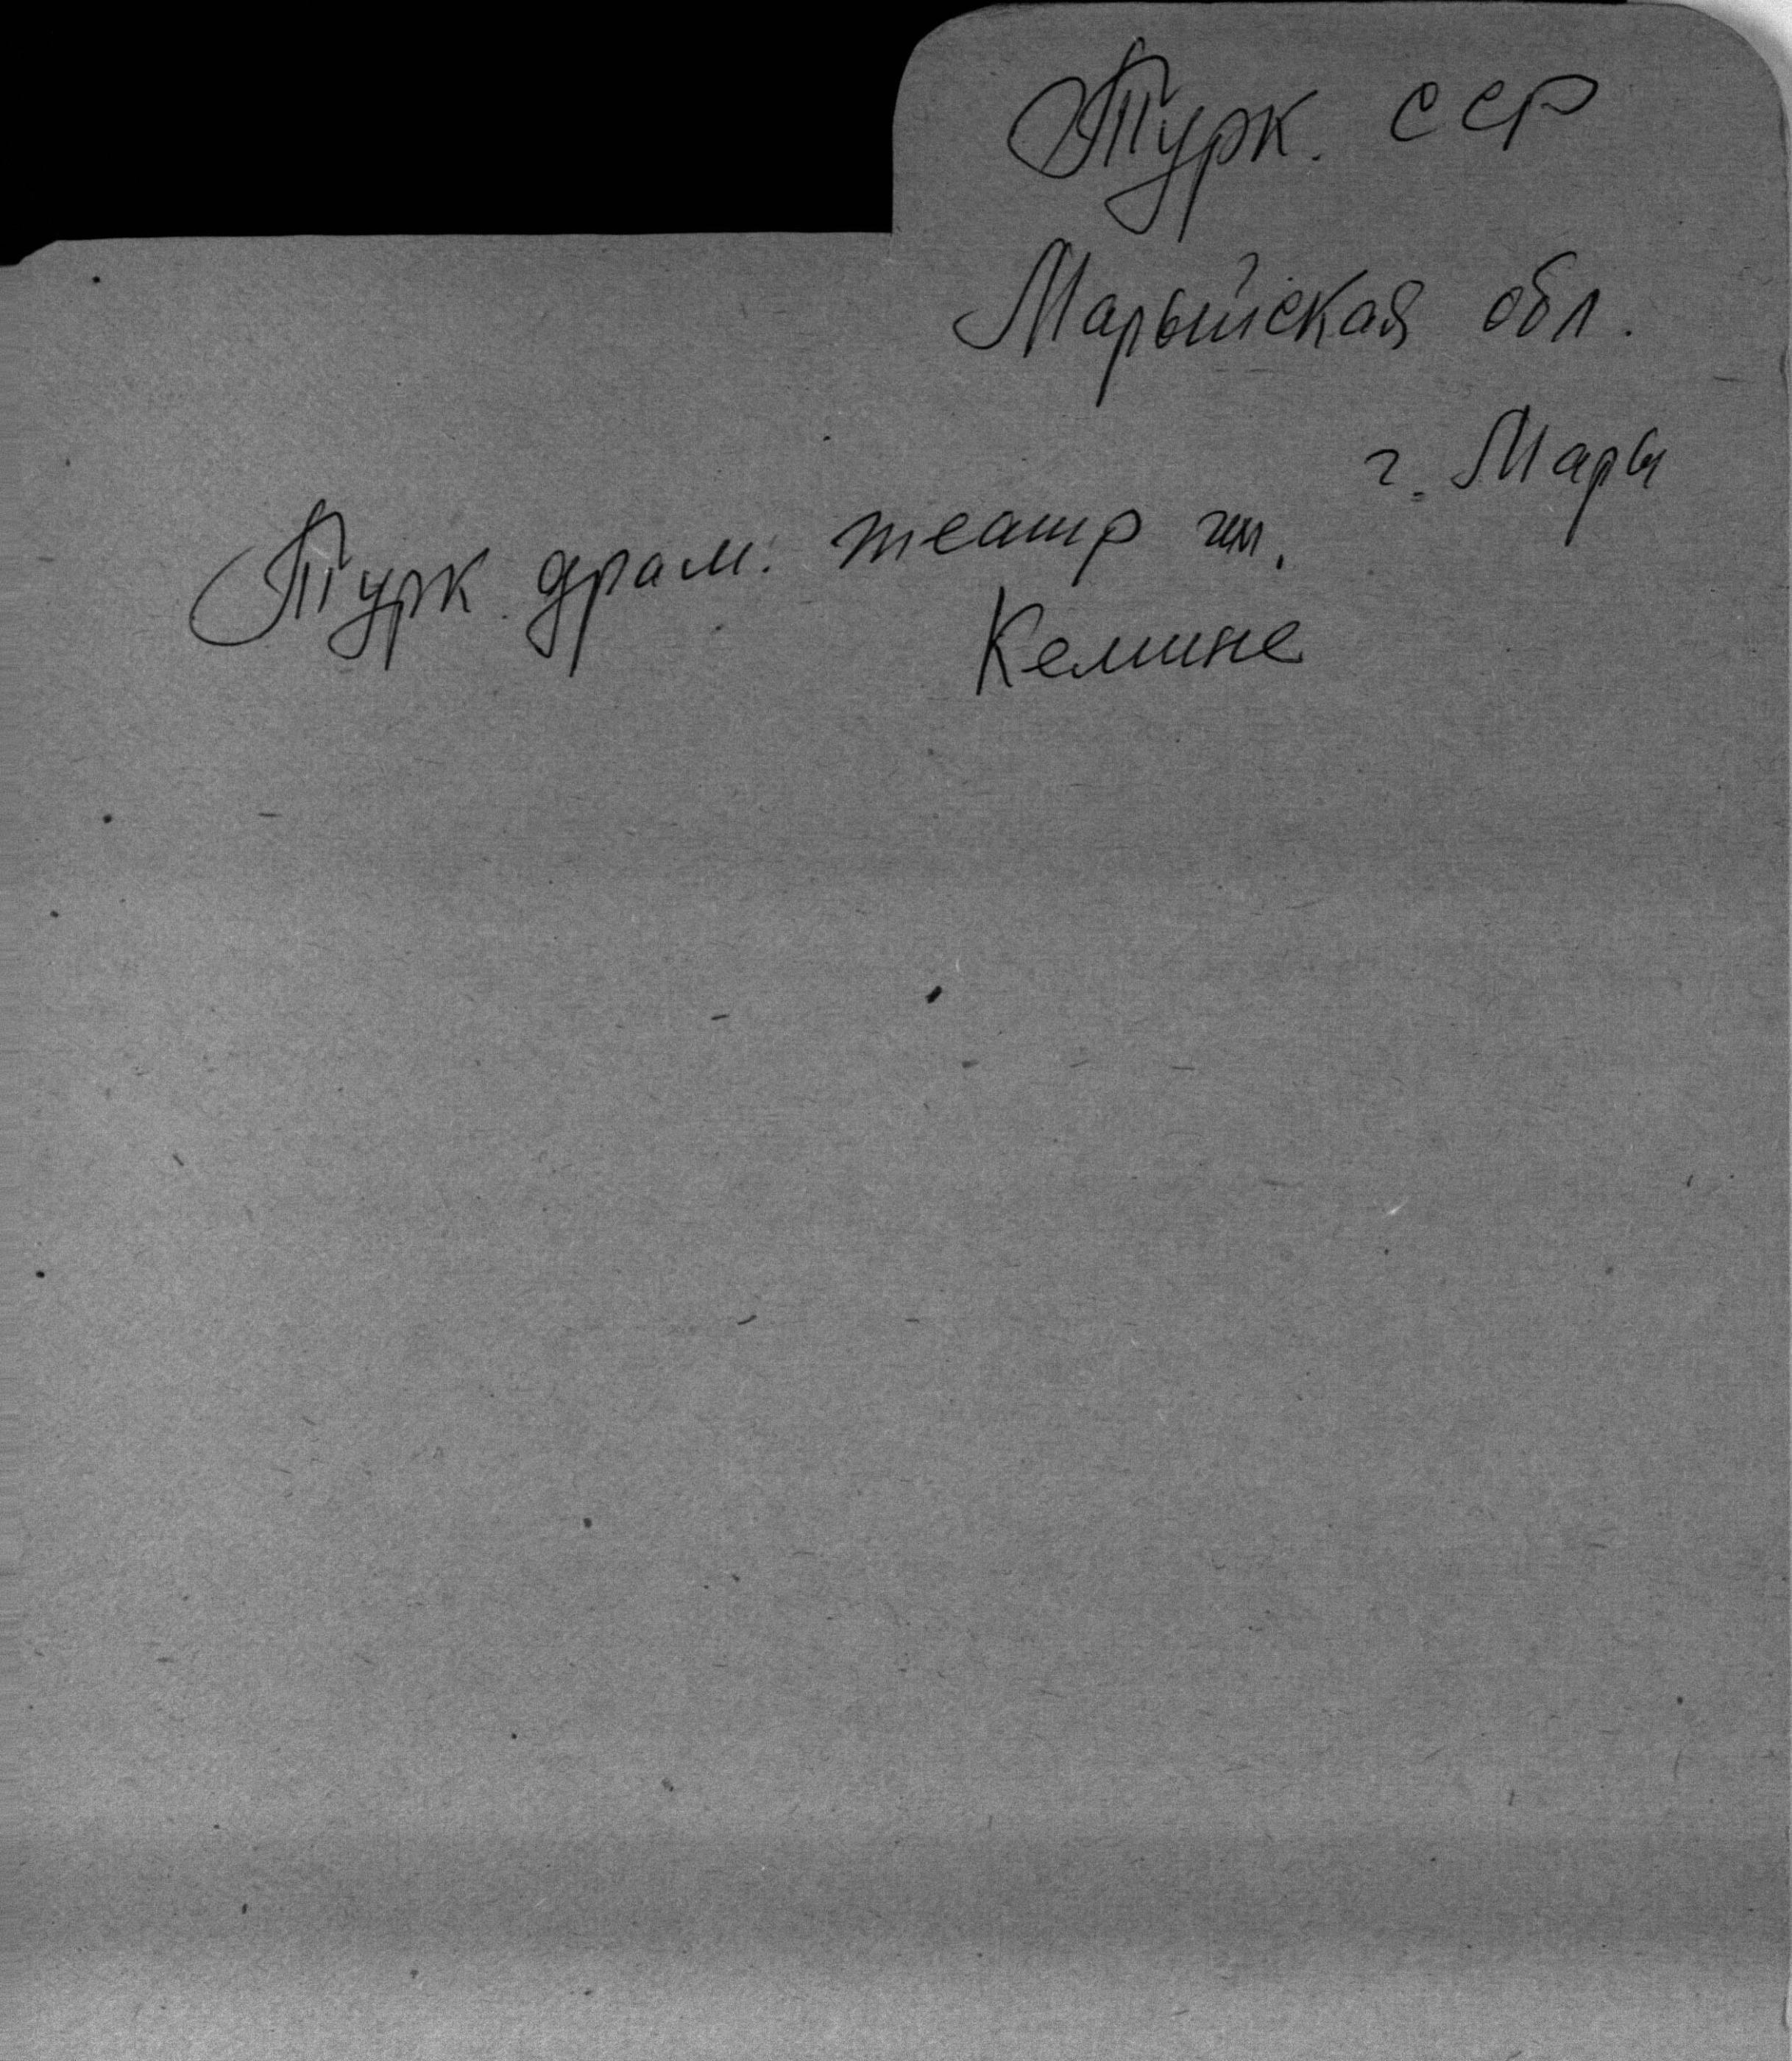 Турк. ССР
Марыйская обл.
г. Мары
Турк. драм. театр им.
Кемине